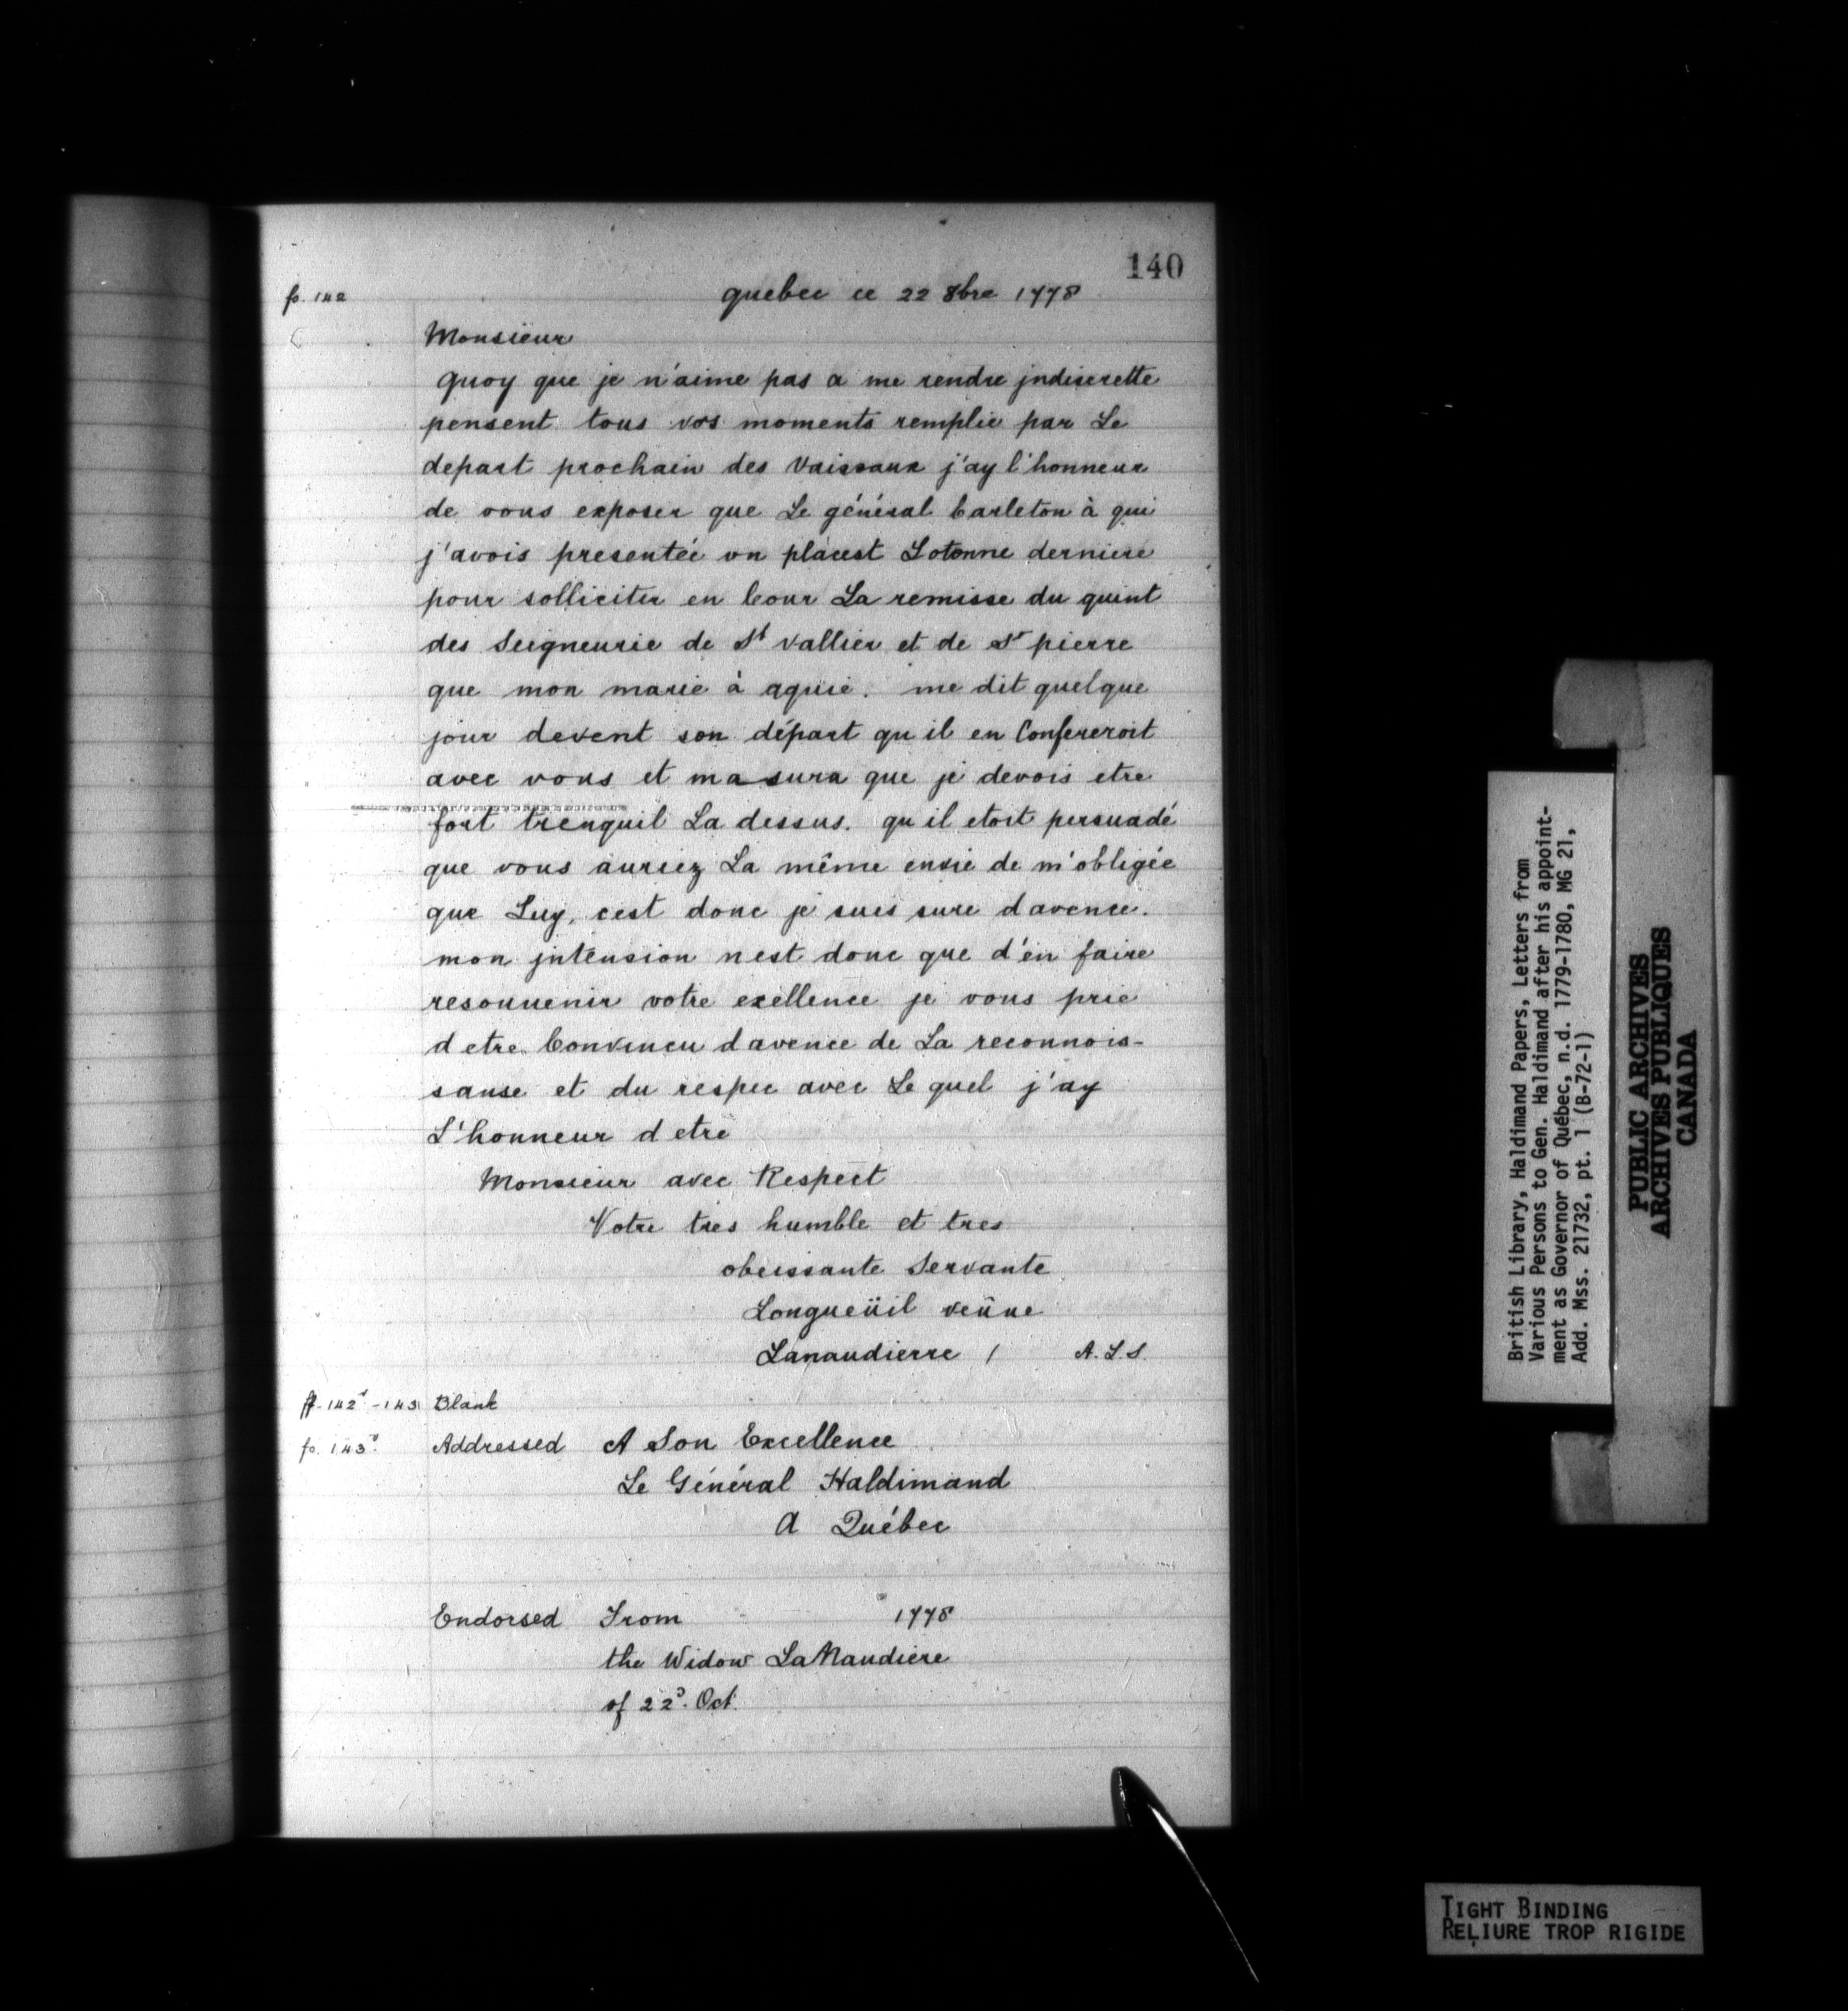 140
fo. 142
quebec ce 22 8bre 1778
Monsieur
quoy que je n'aime pas a me rendre jndiscrette
pensent tous vos moments remplie par Le
depart prochain des Vaissaux j'ay l'honneur
de vous exposer que Le général Carleton à qui
j'avois presentée un placest Lotonne derniere
pour solliciter en Cour La remisse du quint
des Seigneurie de St vallier et de St pierre
que mon marie à aquie. me dit quelque
jour devent son départ qu il en Confereroit
avec vous et ma sura que je devois etre
fort trenquil La dessus. qu il etoit persuadé
que vous auriez La même envie de m'obligée
que Luy, cest donc je suis sure davence.
mon jntension nest donc que d'en faire
resouvenir votre exellence je vous prie
d etre Convincu davence de La reconnois-
sanse et du respec avec Le quel j'ay
L'honneur d etre
Monsieur avec Respect
Votre tres humble et tres
obeissante Servante
Longueüil veüve
Lanaudierre / A.L.S.
ff. 142v - 143 Blank
fo. 143v. Addressed A Son Excellence
Le Général Haldimand
A Québec
Endorsed From 1778
the Widow LaNaudiere
of 22d. Oct.
British Library, Haldimand Papers, Letters from
Various Persons to Gen. Haldimand after his appoint-
ment as Governor of Québec, n.d. 1779-1780, MG 21,
Add. Mss. 21732, pt. 1 (B-72-1)
PUBLIC ARCHIVES
ARCHIVES PUBLIQUES
CANADA
TIGHT BINDING
RELIURE TROP RIGIDE